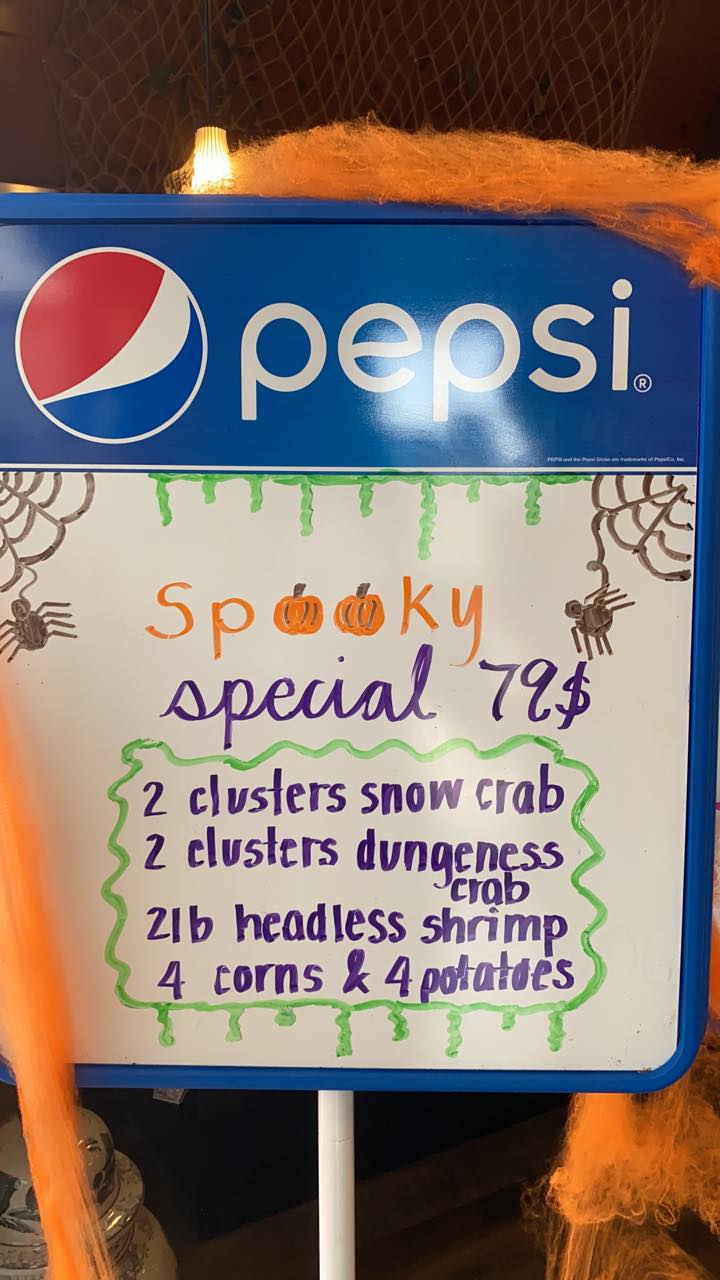 pepsi®
PEPSI and the Pepsi Globe are trademarks of PepsiCo, Inc.
Spooky
special 79$
2 clusters snow crab
2 clusters dungeness
crab
2lb headless shrimp
4 corns & 4 potatoes